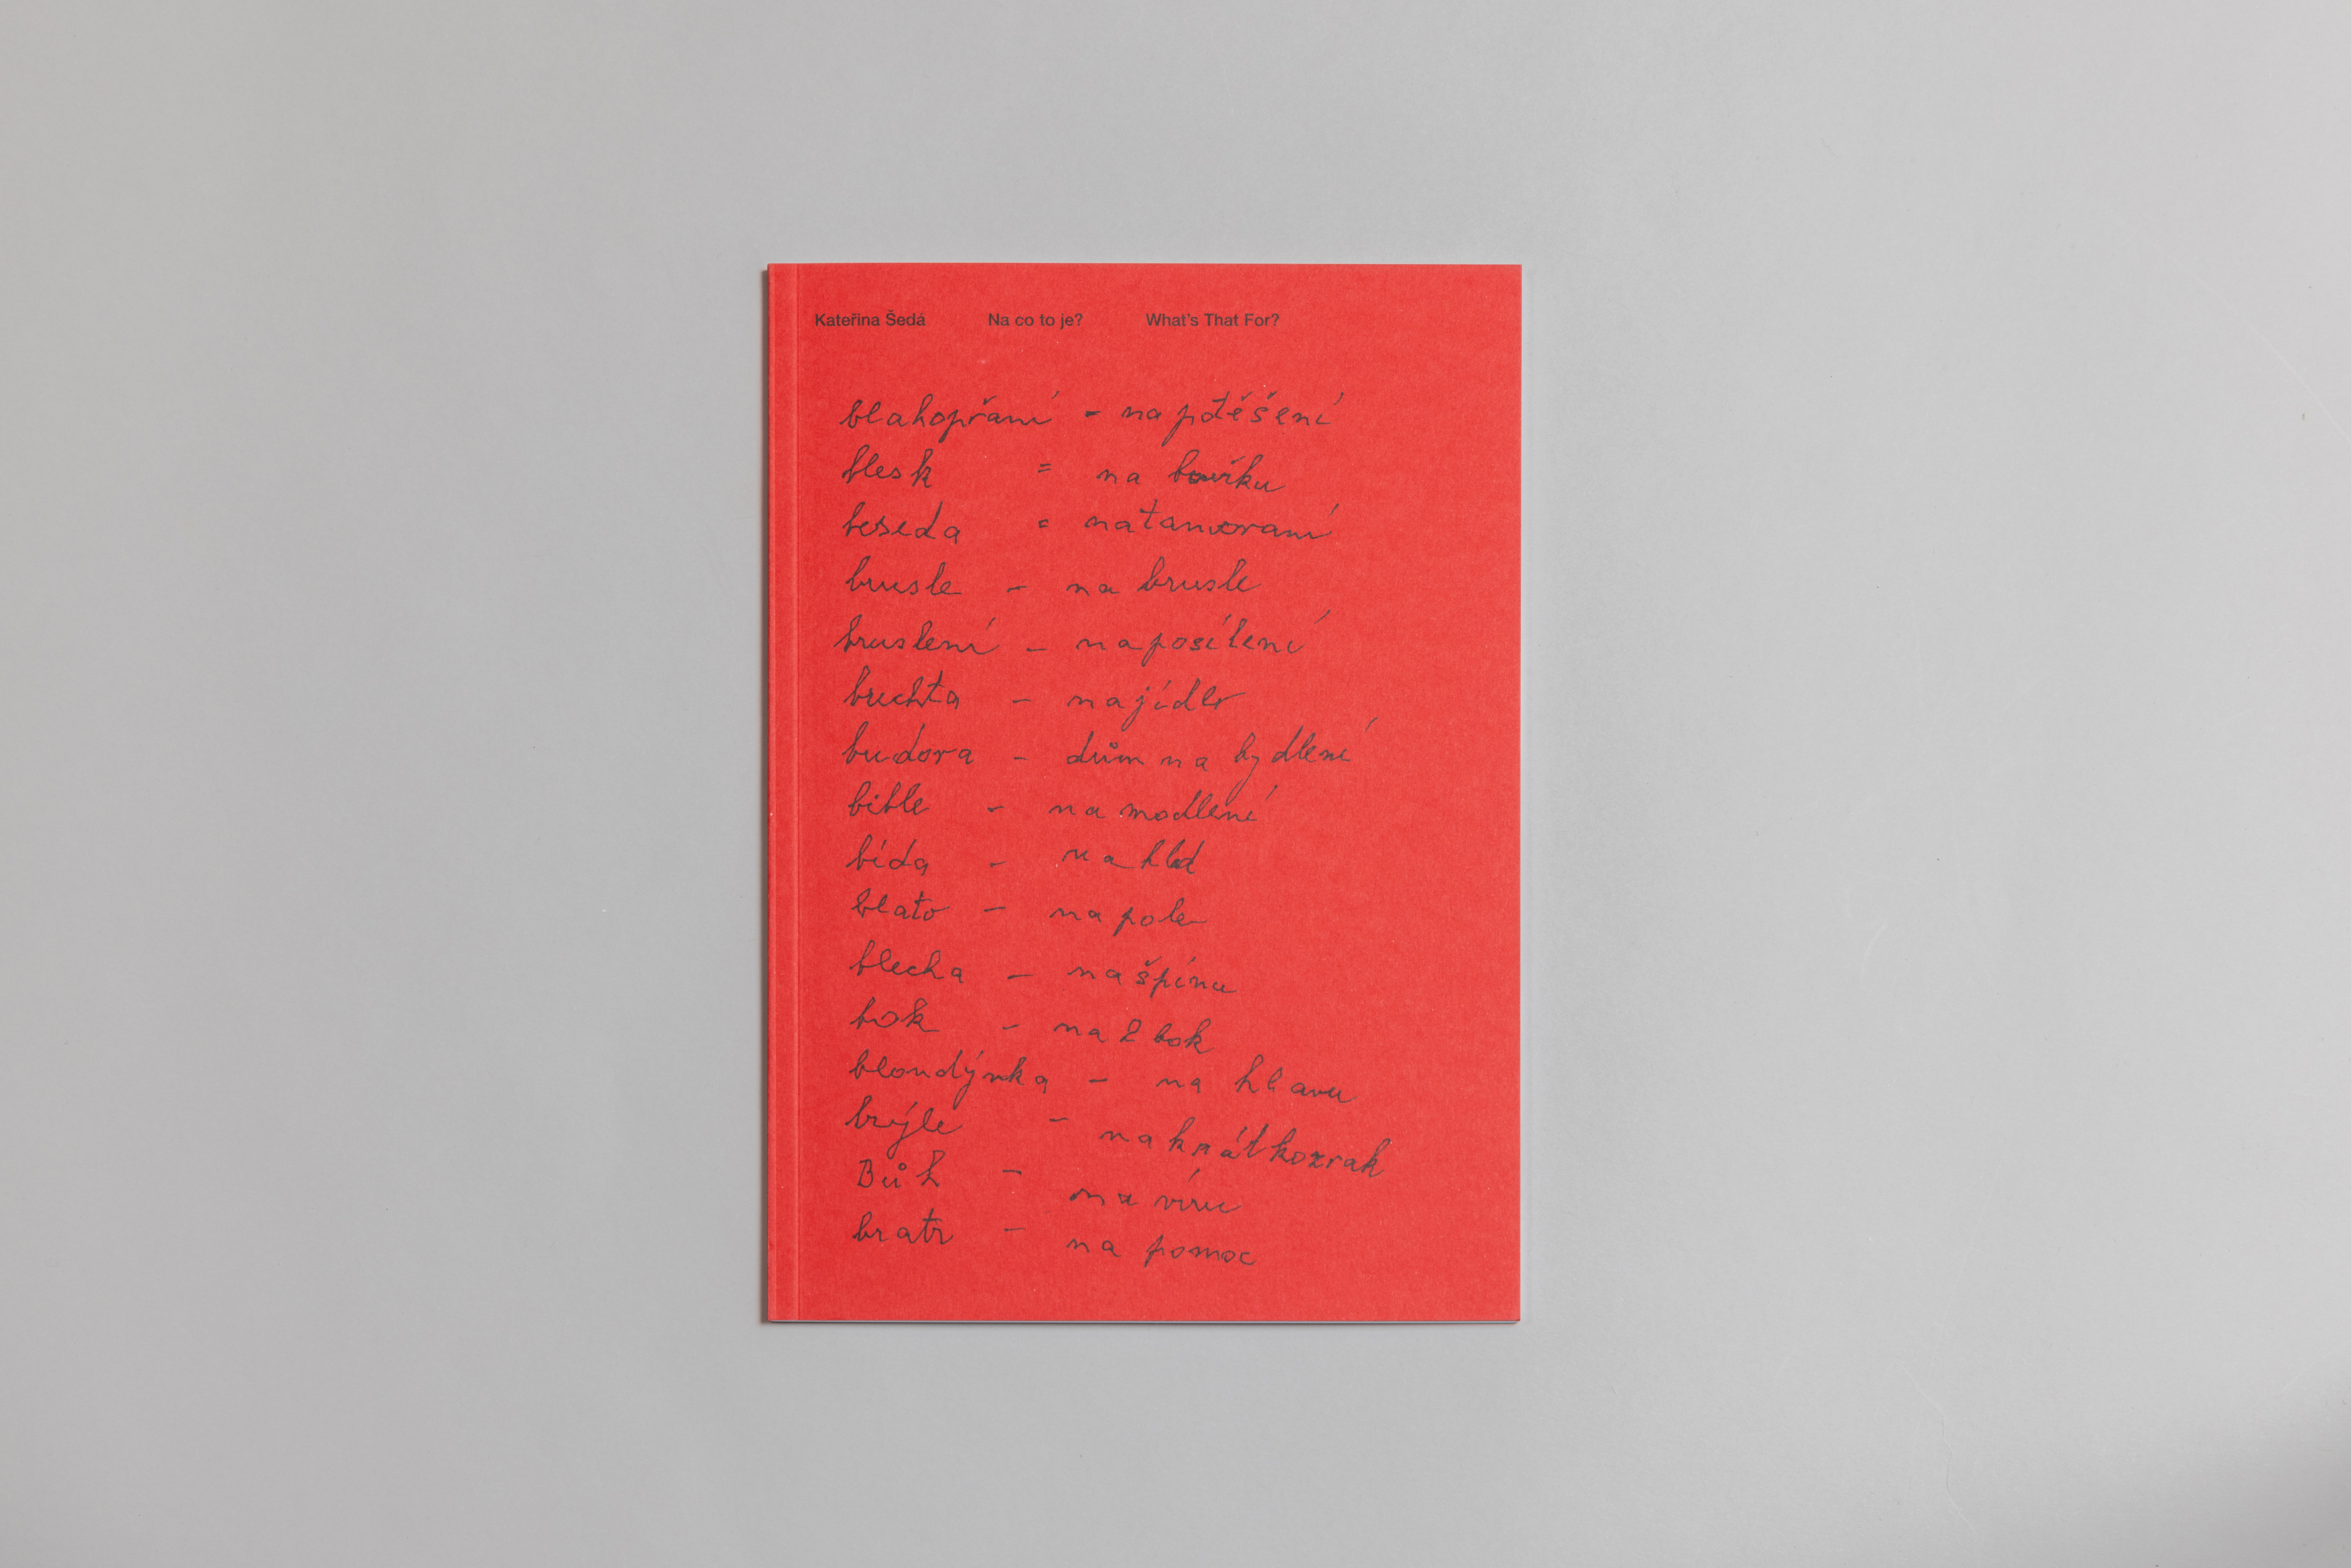 Kateřina Šedá Na co to je? What's That For?
blahopřaní - na ptěšení
blesk = na bouřku
beseda = na
brusle - na brusle
bruslení - na posílení
buchta - na jídlo
budova - dům na bydlení
bible - na modlení
bída - na hlad
blato - na pole
blecha - na špínu
bok - na 2 bok
blondýnka - na hlavu
brýle - na krátkozrak
Bůh - na víru
bratr - na pomoc